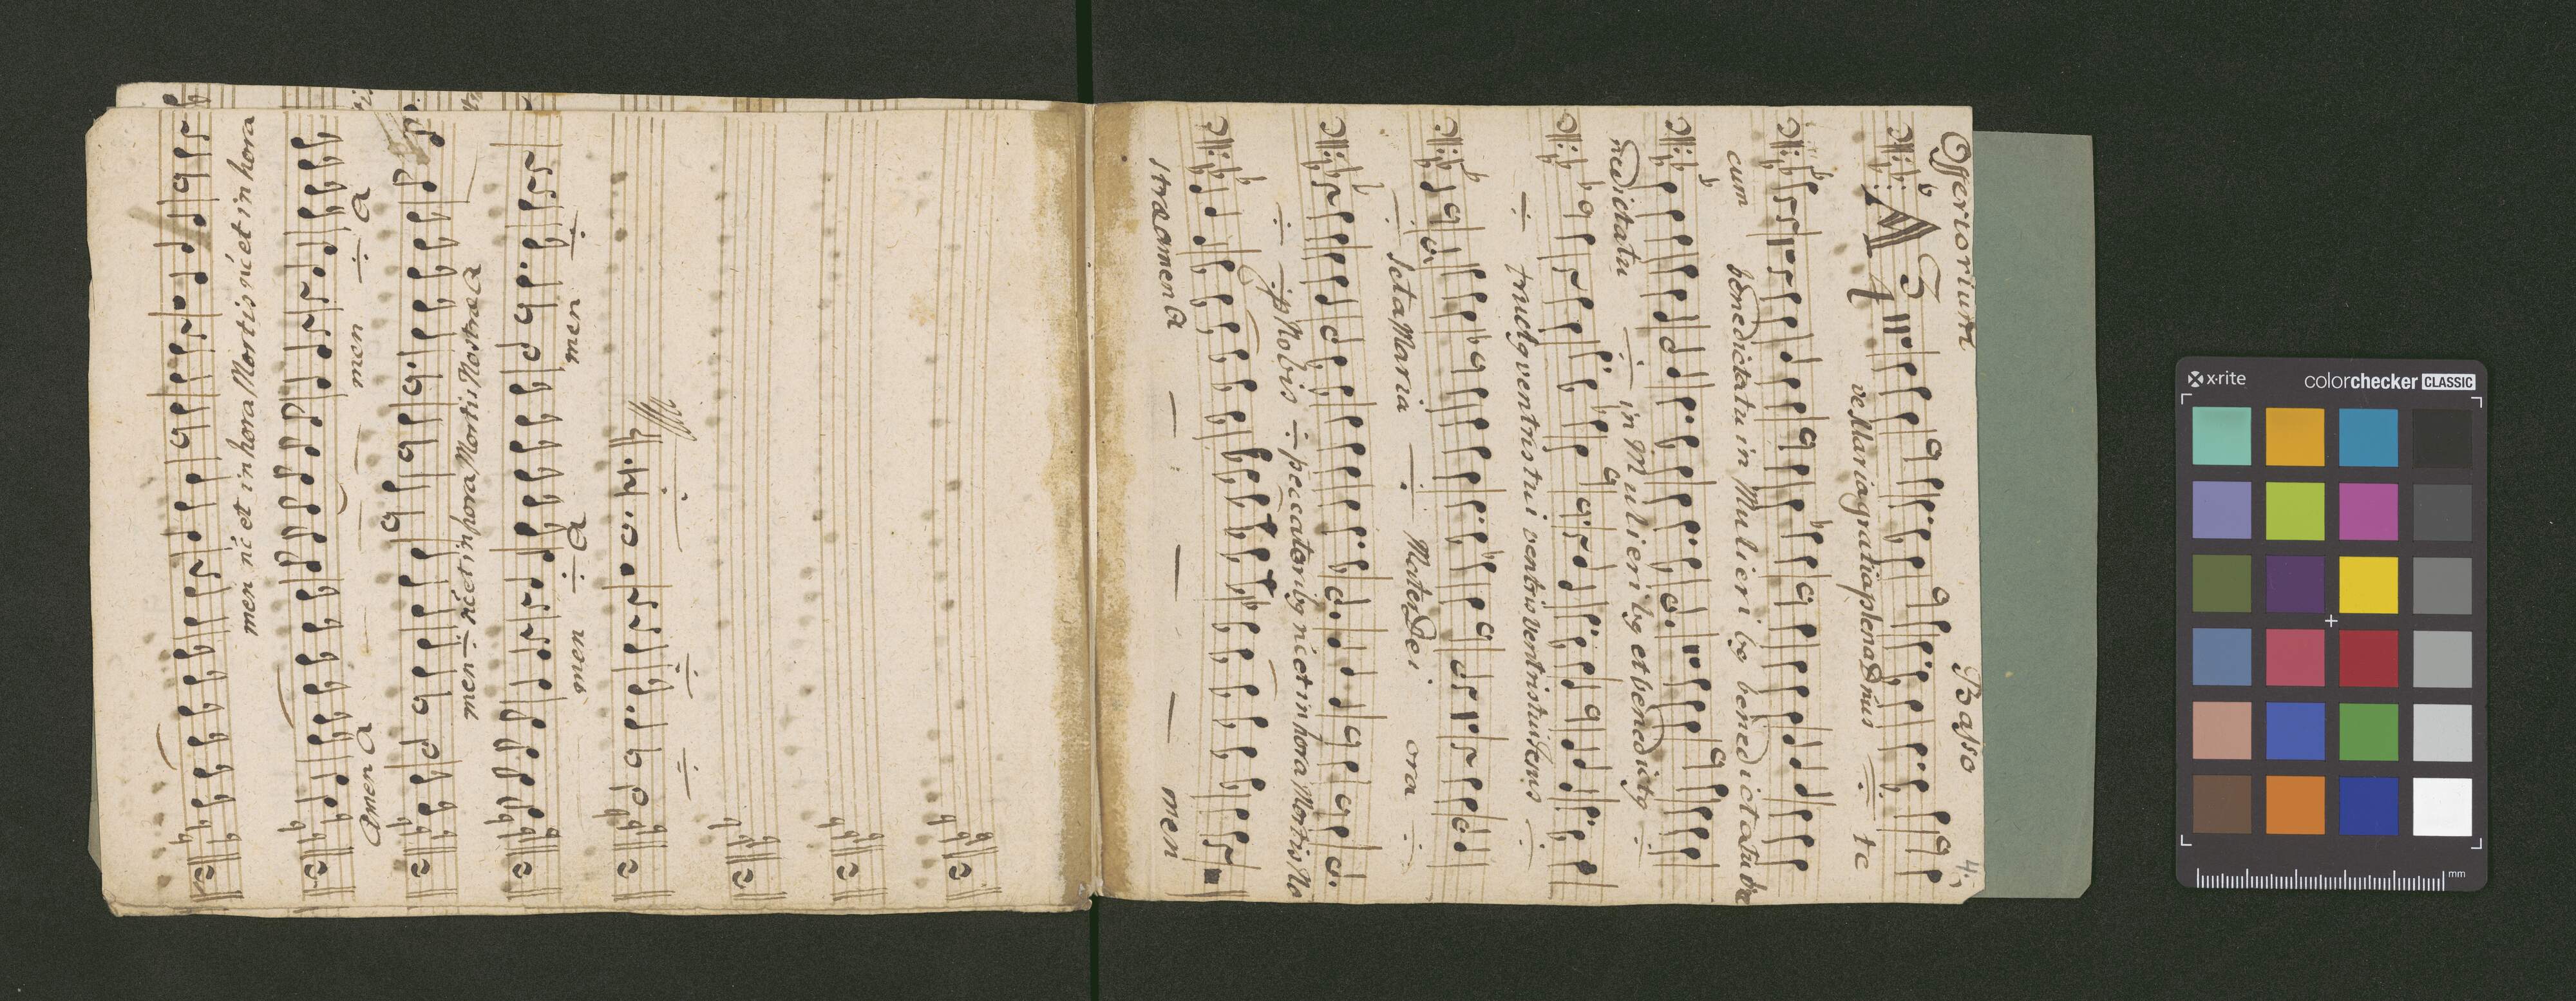 men nc̄ et in hora Mortis nc̄ et in hora
Amen a men ÷ a
men ÷ nc̄ et in hora Mortis Nostræ a
men ÷ a men ÷
÷ ÷ ÷
Offeriorium Basso 4.
A 3
4
Ave Maria gratia plena Dñus ÷ te
cum benedicta tu in Mulieribg benedicta tu be
nedicta tu ÷ in Mulieribg et benedictg ÷
÷ fructg ventris tui ventris ventris tui Jesus ÷
÷ Scta Maria ÷ Mater Dei ora ÷
÷ ip Nobis ÷ peccatoribg nc̄ et in hora Mortis No
stræ amen a — — — men
x-rite colorchecker CLASSIC
mm